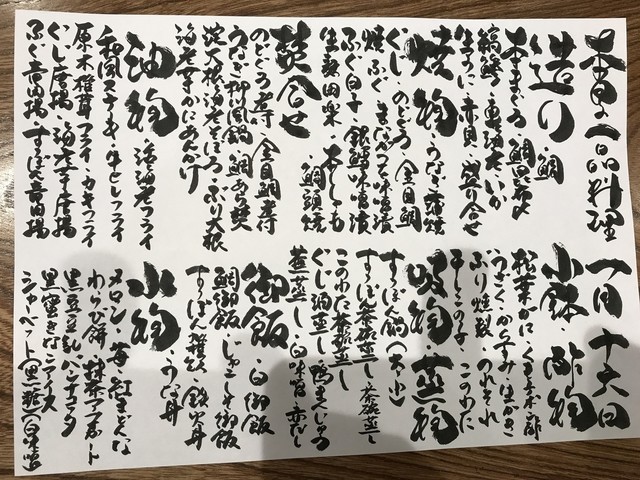 本日の一品料理 一月十六日
造り・鯛
本まぐろ・鯛昆布〆
縞鯵・車海老・いか
生うに・赤貝・盛り合せ
焼物・うなぎ蒲焼
ぐじ・のどぐろ・金目鯛
焼ふぐ・まながつを味噌漬
ふぐ白子・銀鱈味噌漬
生麩田楽・本ししゃも
・鯛頭焼
焚合せ
のどぐろ煮付・金目鯛煮付
うなぎ柳川鍋・鯛あら焚
淀大根と海老そぼろ・ぶり大根
海老芋かにあんかけ
油物・活海老フライ
和風ステーキ・牛ヒレフライ
原木椎茸フライ・カキフライ
ぐじ唐揚・海老芋唐揚
ふぐ竜田揚・すっぽん竜田揚
小鉢・酢物
松葉かに・くもずお酢
うざく・からすみ・生がき
ぶり燻製・のれそれ
干しこの子・このわた
吸物・蒸物
すっぽん鍋(大・小)
すっぽん茶碗蒸し・茶碗蒸し
このわた茶碗蒸し
ぐじ酒蒸し・鴨まんじゅう
蕪蒸し・白味噌・赤だし
御飯・白御飯
鯛御飯・じゃこと御飯
すっぽん雑炊・鉄火丼
・うな丼
水物
メロン・苺・紅まどんな
わらび餅・抹茶アフォガート
黒豆豆乳パンナコッタ
黒蜜きな粉アイス
シャーベット(黒糖)(白味噌)